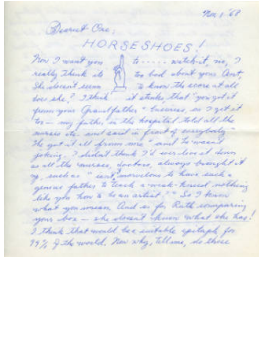 Nov 1 '68
Dearest One:
HORSESHOES!
Now I want you to ..... watch it, no, I
really think it's too bad about your Aunt,
She doesn't seem to know the score at all
does she? I think it stinks, that "you get it
from your Grandfather" business. So I get it
too - my father in the hospital told all the
nurses etc. and said in front of everybody "
She got it all from me" - and he wasn't
joking. I didn't think I'd ever live it down
as all the nurses, doctors, always brought it
up, such as "isn't it marvelous to have such a
genius father to teach a weak-kneed nothing
like you how to be an artist" " So I know
what you mean. And as for Ruth comparing
your box - she doesn't know what she has!
I think that would be a suitable epitaph for
99% of the world. Now why, tell me, do these